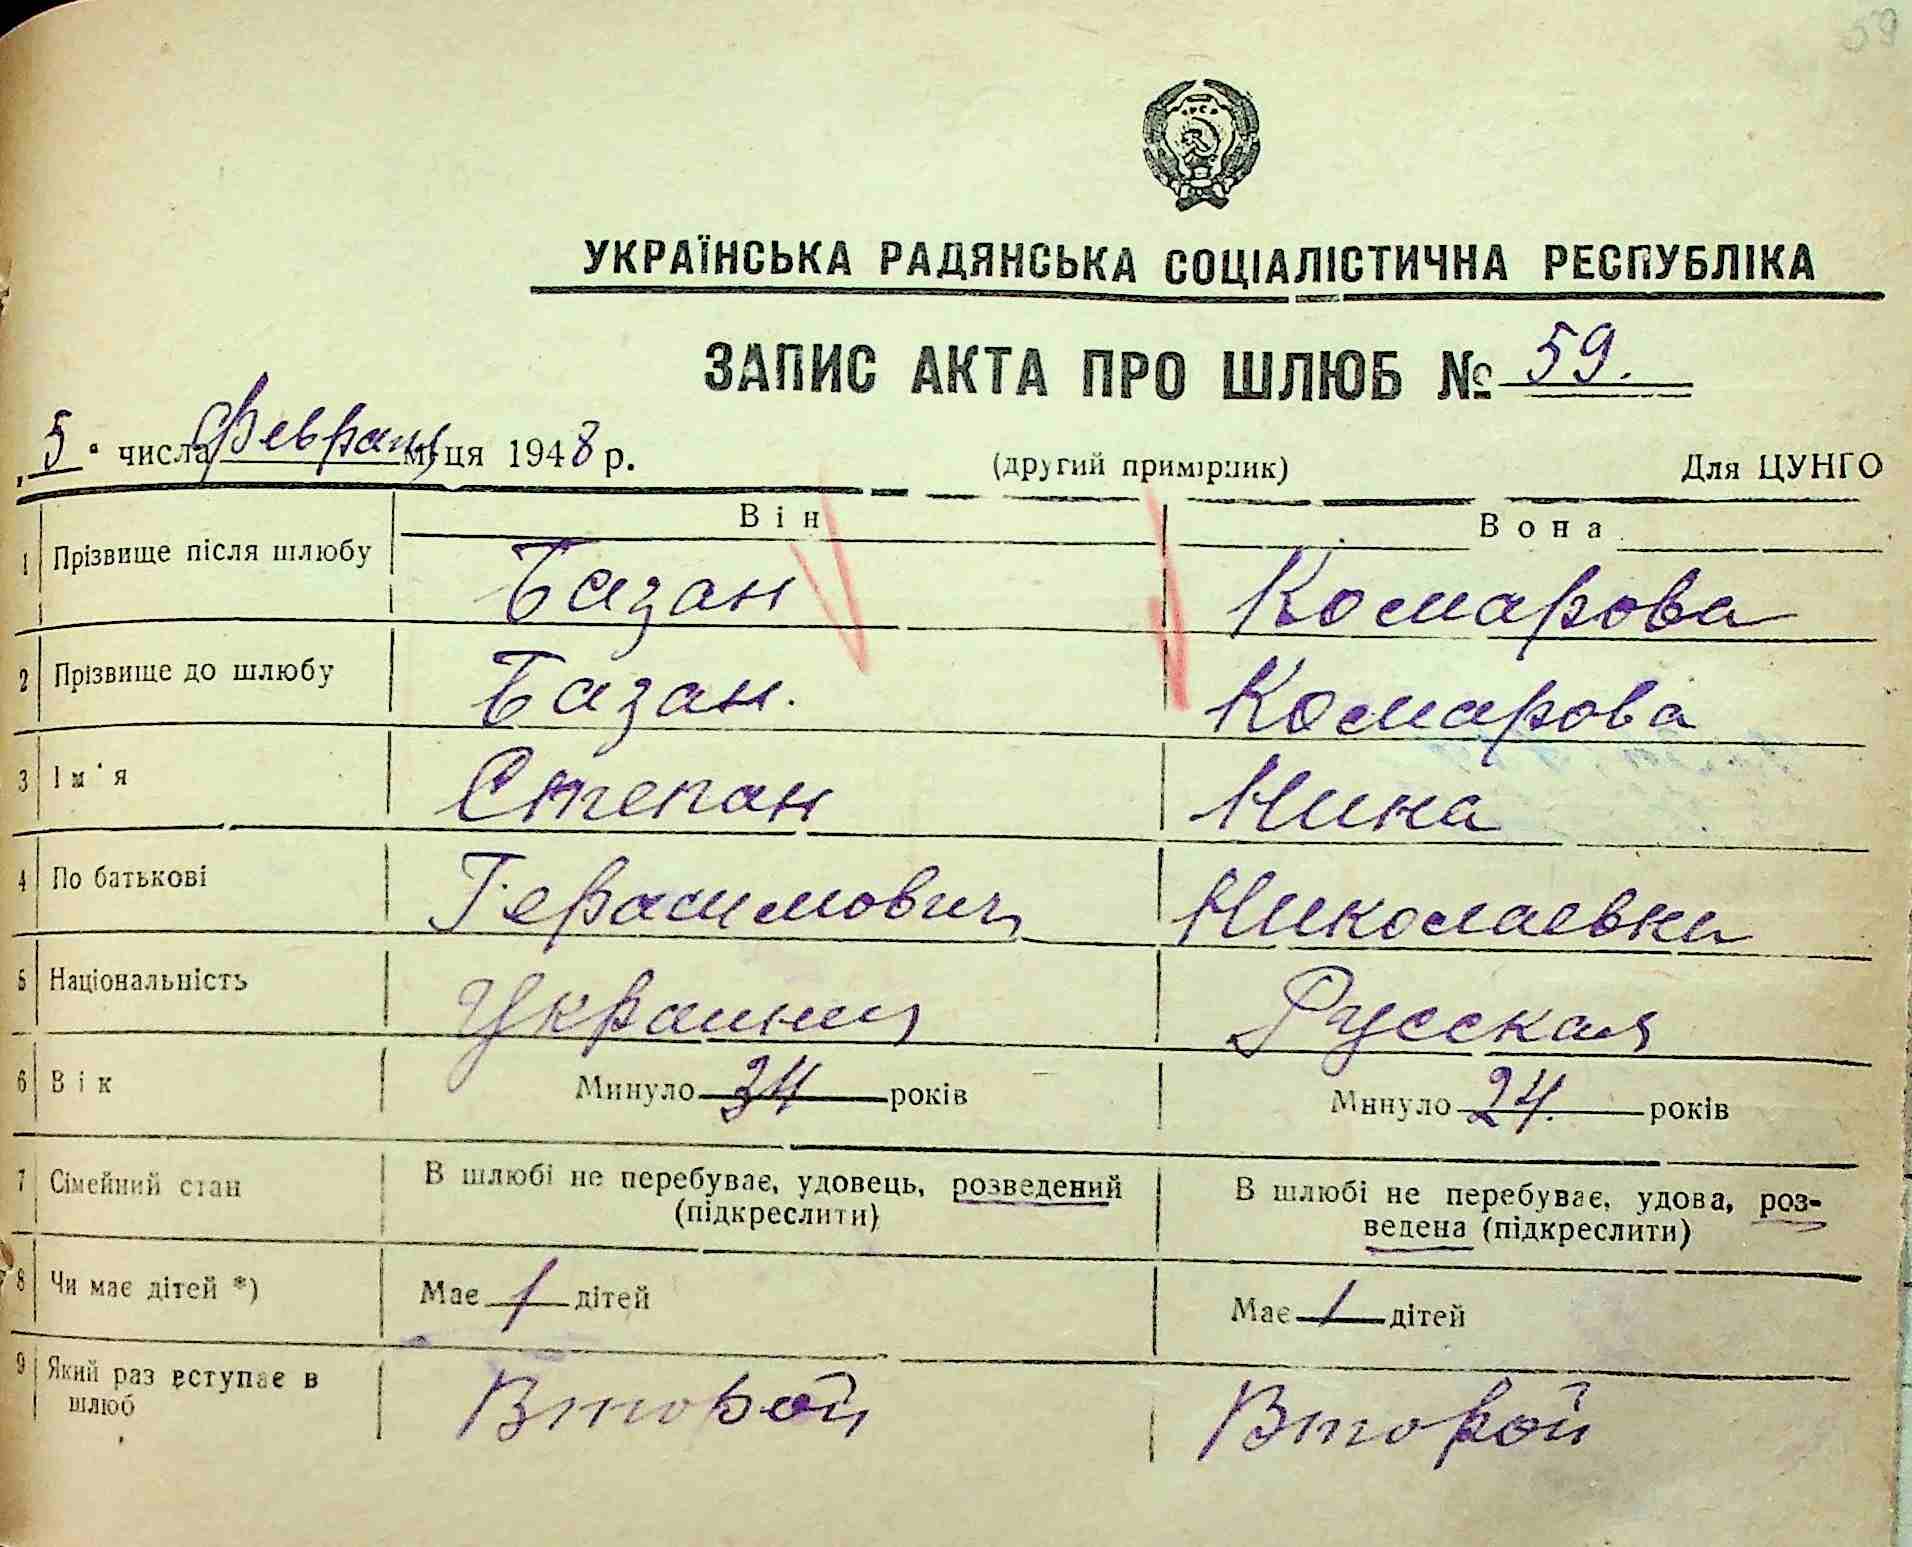 59
УКРАЇНСЬКА РАДЯНСЬКА СОЦІАЛІСТИЧНА РЕСПУБЛІКА
ЗАПИС АКТА ПРО ШЛЮБ № 59.
5 числа февраля м-ця 1948 р. (другий примірник) Для ЦУНГО
Він Вона
1 Прізвище після шлюбу Базан Комарова
2 Прізвище до шлюбу Базан. Комарова
3 Ім'я Степан Нина
4 По батькові Герасимович Николаевна
5 Національність Украинец Русская
6 Вік Минуло 34 років Минуло 24. років
7 Сімейний стан В шлюбі не перебуває, удовець, розведений В шлюбі не перебуває, удова, роз-
(підкреслити) ведена (підкреслити)
8 Чи має дітей *) Має 1 дітей Має 1 дітей
9 Який раз вступає в Второй Второй
шлюб